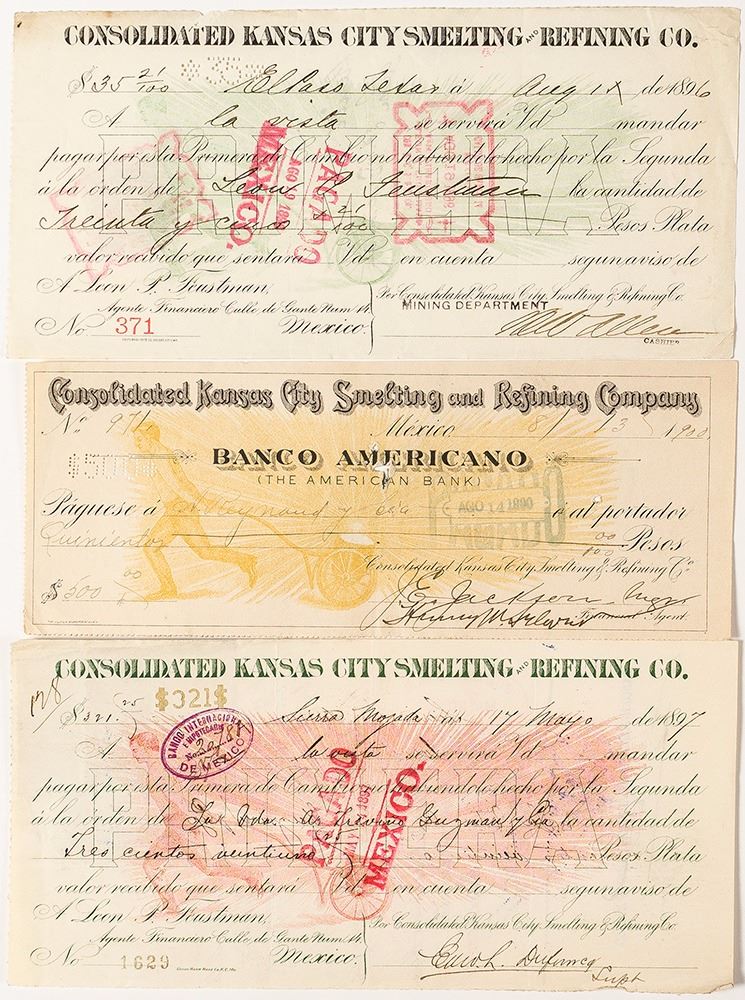 CONSOLIDATED KANSAS CITY SMELTING AND REFINING CO.
$35 21/100 El Paso Texas á Aug 1 de 1896
A la vista se servirá Vd mandar
pagar por esta Primera de Cambio no habiendolo hecho por la Segunda
á la órden de Leon P. Feustman la cantidad de
Treinta y cinco 21/100 Pesos Plata
valor recibido que sentará Vd en cuenta segun aviso de
A Leon P. Feustman,
Agente Financiero Calle de Gante Num 14.
Mexico.
No 371
Por Consolidated Kansas City Smelting & Refining Co.
MINING DEPARTMENT
CASHIER
PRIMERA
PAGADO
AGO 19 189
MEXICO.
Consolidated Kansas City Smelting and Refining Company
No. 971 México, 8/13 1900
$500
BANCO AMERICANO
(THE AMERICAN BANK)
Páguese á A. Reynaud y Cia ó al portador
Quinientos 00/100 Pesos
Consolidated Kansas City Smelting & Refining Co.
$500 00
J. E. Jackson Mgr
Agent.
AGO 14 1890
CONSOLIDATED KANSAS CITY SMELTING AND REFINING CO.
128
$321$
$321.25 Sierra Mojada á 17 Mayo de 1897
BANCO INTERNACIONAL
É HIPOTECARIO
DE MEXICO
A la vista se servirá Vd mandar
pagar por esta Primera de Cambio no habiendolo hecho por la Segunda
á la órden de Vda. de Trevino Guzman y Cia la cantidad de
Tres cientos veintiuno Pesos Plata
valor recibido que sentará Vd en cuenta segun aviso de
A Leon P. Feustman,
Agente Financiero Calle de Gante Num 14.
Mexico.
No 1629
Por Consolidated Kansas City Smelting & Refining Co.
Supt
PRIMERA
PAGADO
MEXICO.